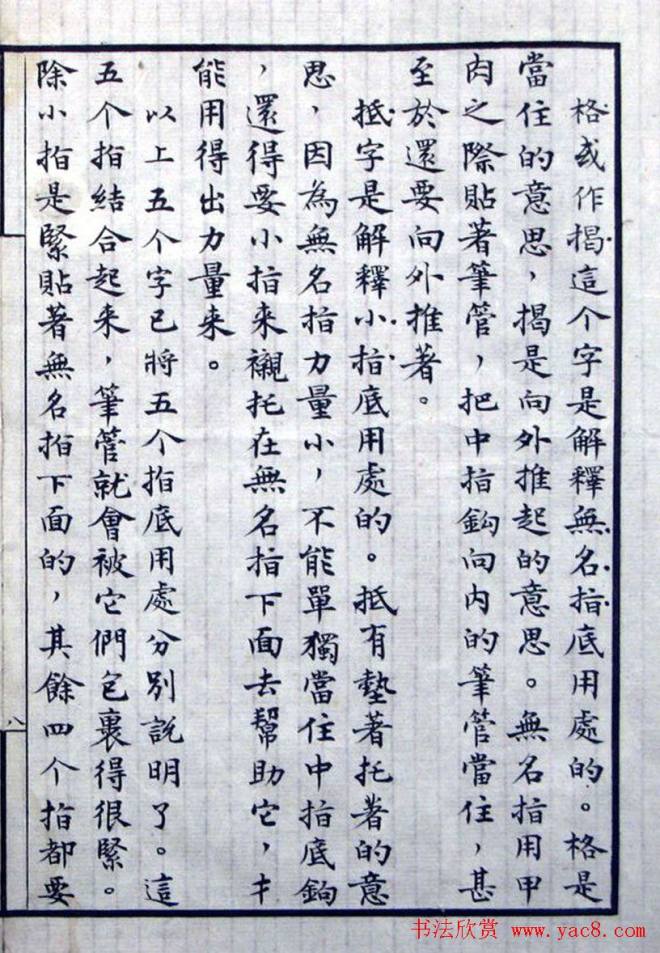 格或作揭這个字是解釋無名指底用處的。格是
當住的意思，揭是向外推起的意思。無名指用甲
肉之際貼著筆管，把中指鈎向内的筆管當住，甚
至於還要向外推著。
抵字是解釋小指底用處的。抵有墊著托著的意
思，因為無名指力量小，不能單獨當住中指底鈎
，還得要小指来襯托在無名指下面去幫助它，才
能用得出力量来。
以上五个字已將五个指底用處分别說明了。這
五个指結合起来，筆管就會被它們包裹得很緊。
除小指是緊貼著無名指下面的，其餘四个指都要
八
书法欣赏 www.yac8.com